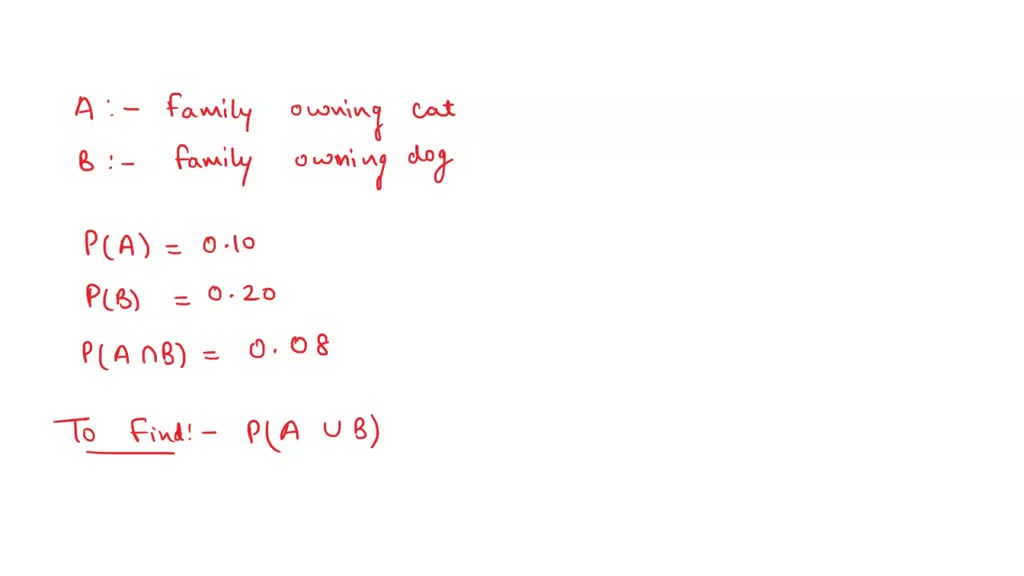 A :- family owning cat
B :- family owning dog
P(A) = 0.10
P(B) = 0.20
P(A ∩ B) = 0.08
To Find :- P(A ∪ B)